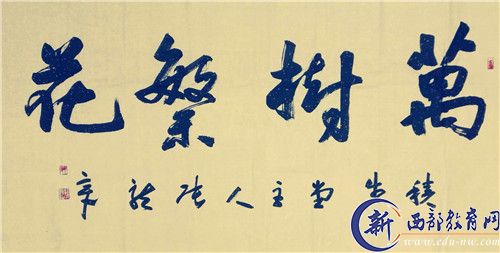 萬樹繁花
堂主人
新 西部教育网
www.edu-nw.com